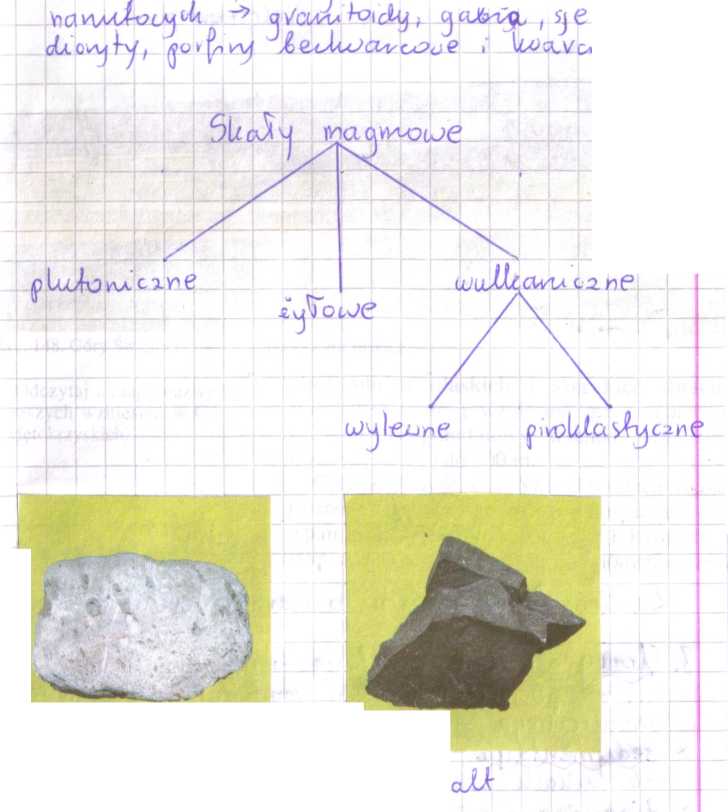 granitoidy, gabra, sje
dioryty, porfiry bezkwarcowe i kwarc
Skały magmowe
plutoniczne
żyłowe
wulkaniczne
wylewne
piroklastyczne
alt